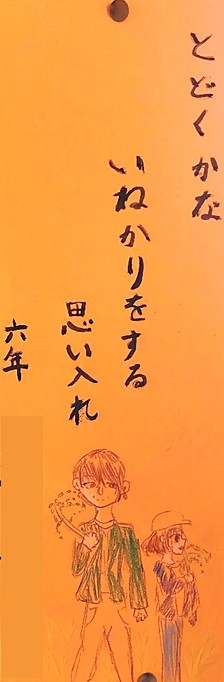 とどくかな
いねかりをする
思い入れ
六年